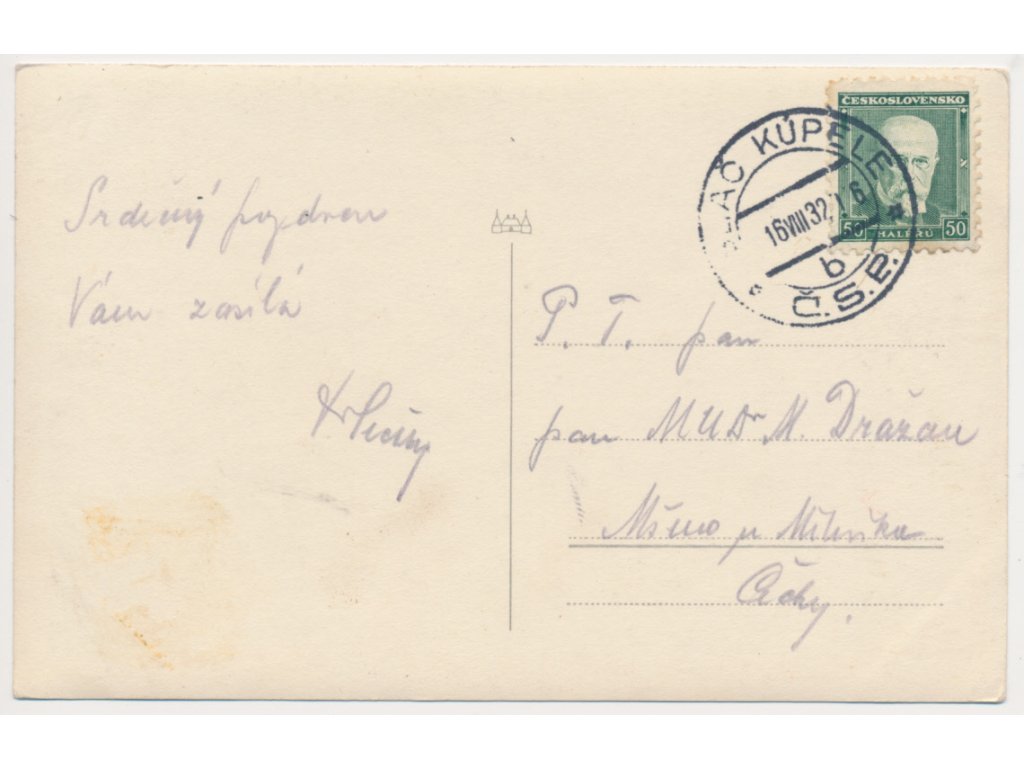 Srdečný pozdrav
Vám zasílá
ČESKOSLOVENSKO
50 HALÉŘŮ 50
SLIAČ KÚPELE
16.VIII.32
b
Č.S.P.
P. T. pan
pan MUDr M. Dražan
Mšeno u Mělníka
Čechy.